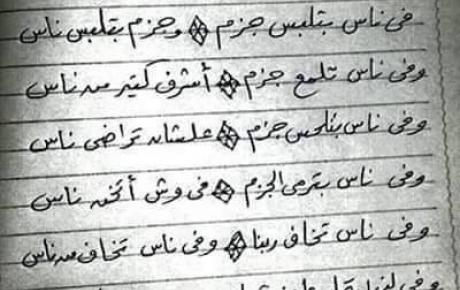 فى ناس بتلبس جزم ۞ وجزم بتلبس ناس
وفى ناس تلمع جزم ۞ أشرف كتير من ناس
وفى ناس بتلحس جزم ۞ علشان تراضى ناس
وفى ناس بترمى الجزم ۞ فى وش أتخن ناس
وفى ناس تخاف ربنا ۞ وفى ناس تخاف من ناس